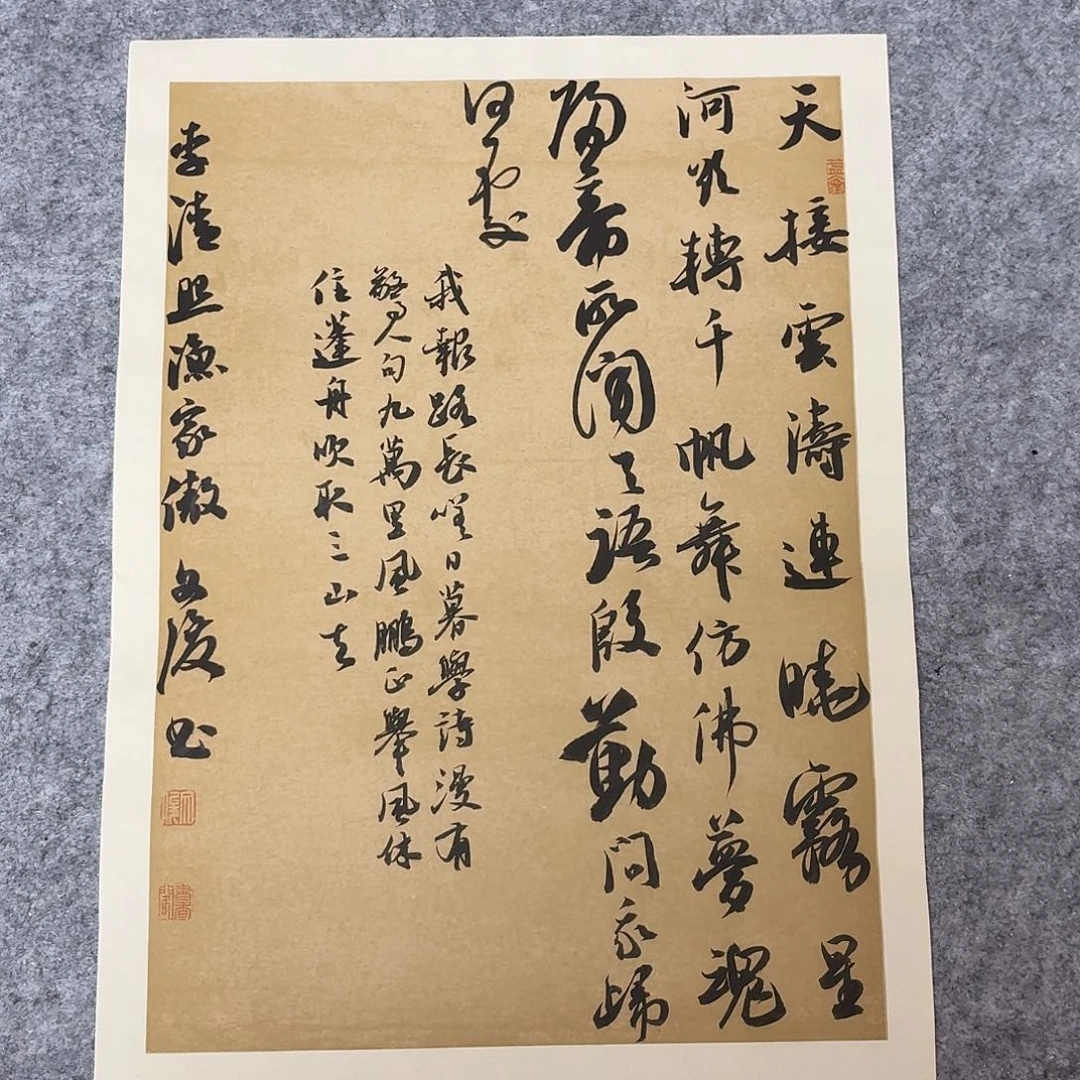 天接雲濤連曉霧星
河欲轉千帆舞仿佛夢魂
歸帝所聞天語殷勤問我歸
何處
我報路長嗟日暮學詩漫有
驚人句九萬里風鵬正舉風休
住蓬舟吹取三山去
李清照漁家傲 书